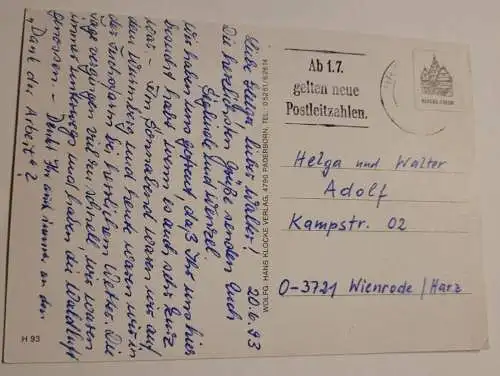 20.6.93
Liebe Helga, lieber Walter!
Die herzlichsten Grüße senden Euch
Sieglinde und Wenzel.
Wir haben uns gefreut, daß Ihr uns hier
besucht habt, wenn es auch sehr kurz
war. - Am Sonnabend waren wir auf
dem und heute waren wir in
der bei herrlichem Wetter. Die
Tage vergingen viel zu schnell, wir waren
immer unterwegs und haben die Waldluft
genossen. - Denkt Ihr auch immer an den
"Dank der Arbeit"?
H 93
WOLFG. HANS KLOCKE VERLAG, 4790 PADERBORN, TEL. 05251/62614
Ab 1.7.
gelten neue
Postleitzahlen.
Helga und Walter
Adolf
Kampstr. 02
O-3721 Wienrode/Harz